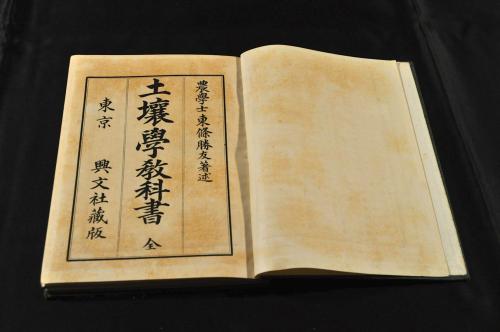 農學士東條勝友著述
土壤學教科書 全
東京 興文社藏版